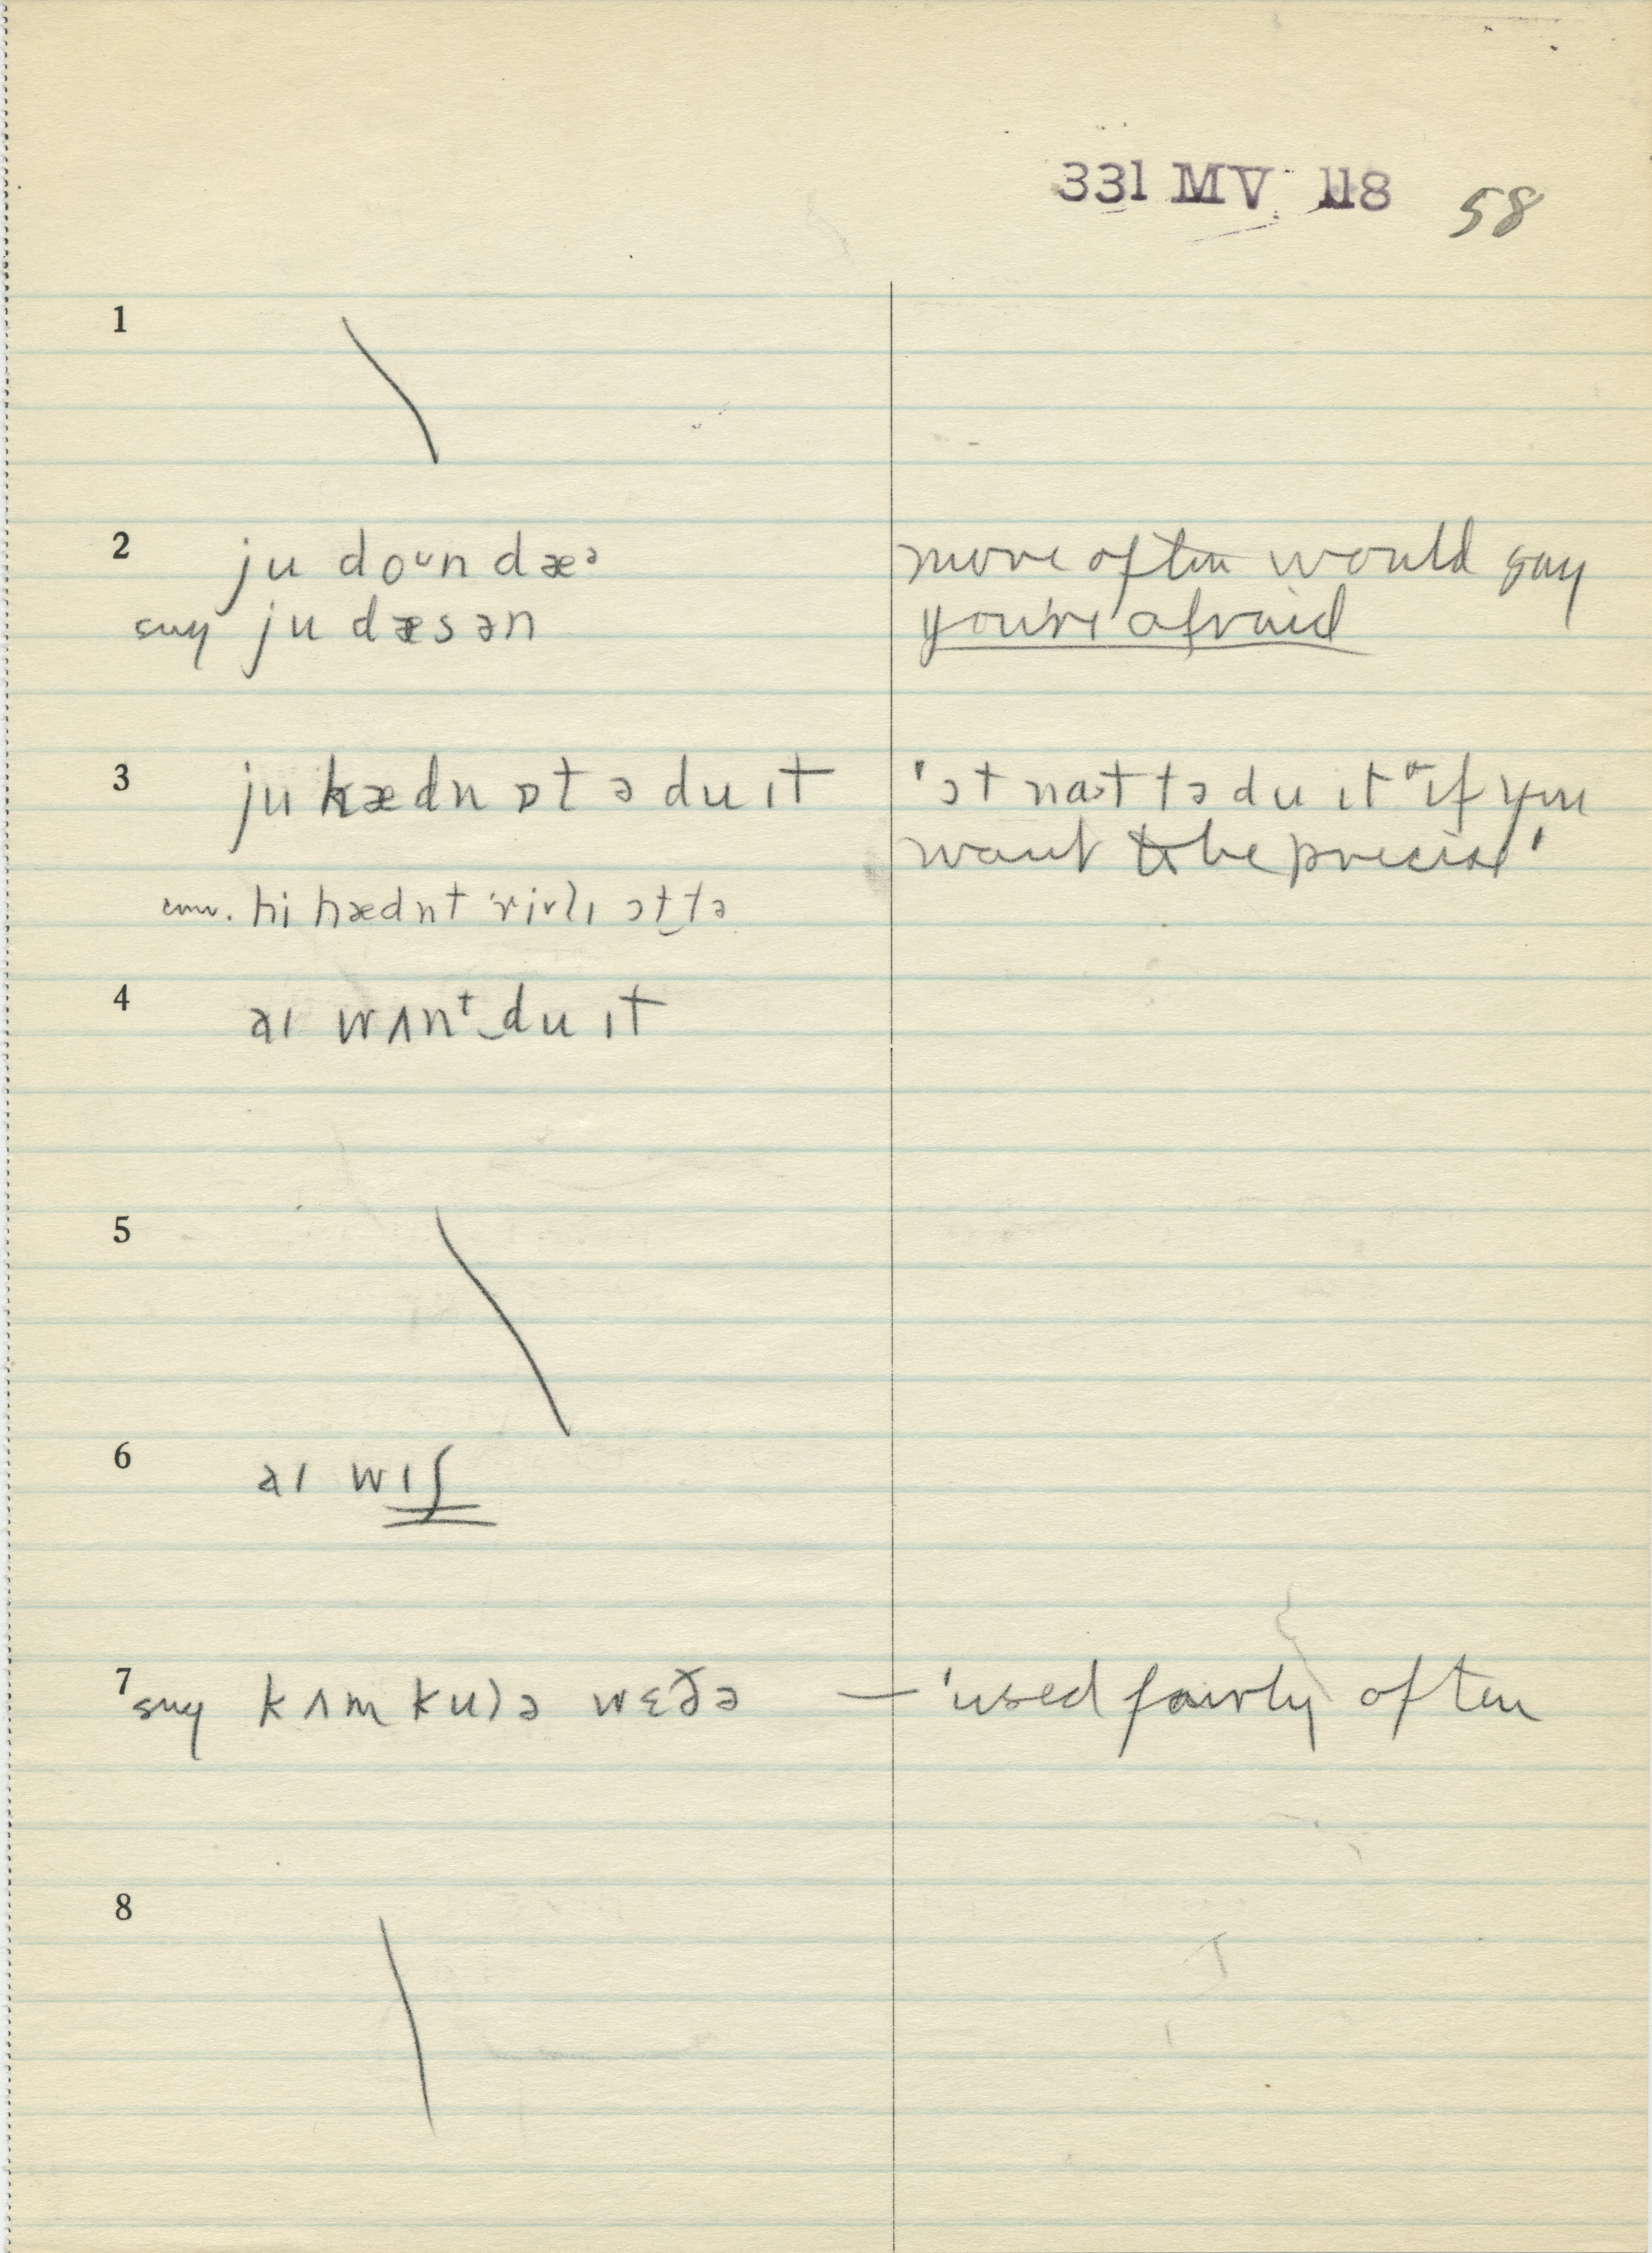 331 MV 118 58
1
2 ju doᴜn dæᵊ more often would say
sug ju dæsən you're afraid
3 ju hædn ɒt ə du ɪt 'ɔt nat tə du ɪt "if you
want to be precise'
conv. hi hædnt ɔt tə
4 aɪ wʌnᵗ du ɪt
5
6 aɪ wɪʃ
7 sug kʌm kulə wɛðə — 'used fairly often
8